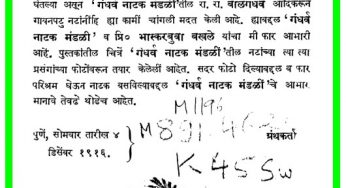 घेतल्या असून 'गंधर्व नाटक मंडळी'तील रा. रा. वालगंधर्व आदिकरून
गायनपटु नटांनींहि ह्या कामीं चांगली मदत केली आहे. ह्याबद्दल 'गंधर्व
नाटक मंडळी' व प्रि० भास्करबुवा बखले यांचा मी फार आभारी
आहें. पुस्तकांतील चित्रें 'गंधर्व नाटक मंडळी'तील नटांच्या त्या त्या
प्रसंगांच्या फोटोंवरून तयार केलेलीं आहेत. सदर फोटो दिल्याबद्दल व फार
परिश्रम घेऊन नाटक बसविल्याबद्दल 'गंधर्व नाटक मंडळी'चे आभार
मानावे तेवढे थोडेच आहेत.
M1196
पुणें, सोमवार तारीख ४
डिसेंबर १९१६.
M891.46
ग्रंथकर्ता
K45Sw